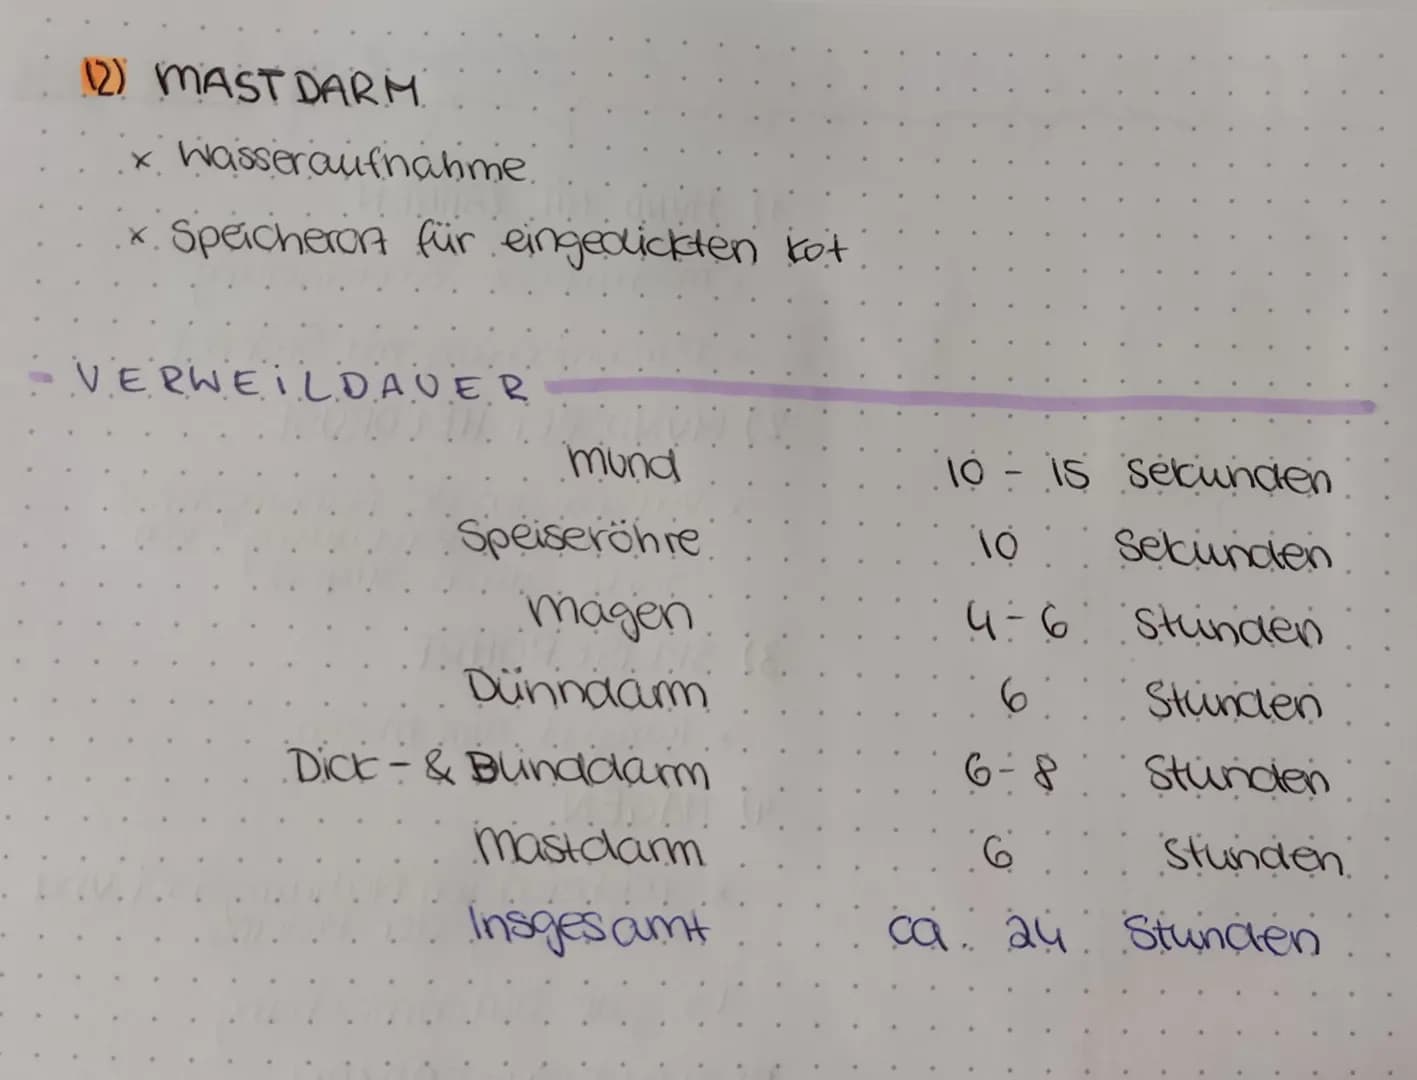 12) MASTDARM
x Wasseraufnahme
x Speicherort für eingedickten Kot
- VERWEILDAUER
Mund 10 - 15 Sekunden
Speiseröhre 10 Sekunden
Magen 4-6 Stunden
Dünndarm 6 Stunden
Dick- & Blinddarm 6-8 Stunden
Mastdarm 6 Stunden
Insgesamt ca. 24 Stunden